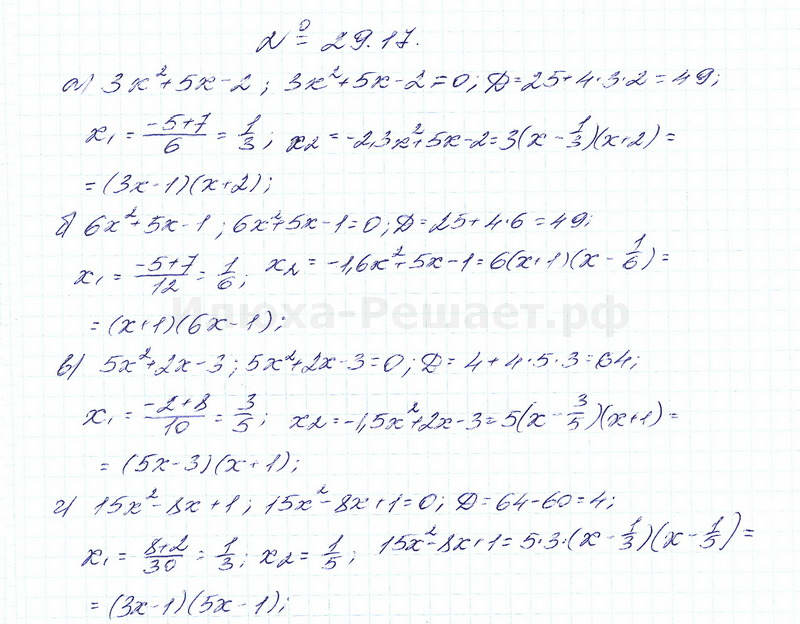 № 29.17.
а) 3x²+5x-2; 3x²+5x-2=0; Д=25+4·3·2=49;
x₁ = -5+7/6 = 1/3; x₂ = -2,3x²+5x-2=3(x-1/3)(x+2)=
=(3x-1)(x+2);
б) 6x²+5x-1; 6x²+5x-1=0; Д=25+4·6=49;
x₁ = -5+7/12 = 1/6; x₂ = -1,6x²+5x-1=6(x+1)(x-1/6)=
Илюха-Решает.рф
=(x+1)(6x-1);
в) 5x²+2x-3; 5x²+2x-3=0; Д=4+4·5·3=64;
x₁ = -2+8/10 = 3/5; x₂=-1,5x²+2x-3=5(x-3/5)(x+1)=
=(5x-3)(x+1);
г) 15x²-8x+1; 15x²-8x+1=0; Д=64-60=4;
x₁ = 8+2/30 = 1/3; x₂ = 1/5; 15x²-8x+1=5·3·(x-1/3)(x-1/5)=
=(3x-1)(5x-1);